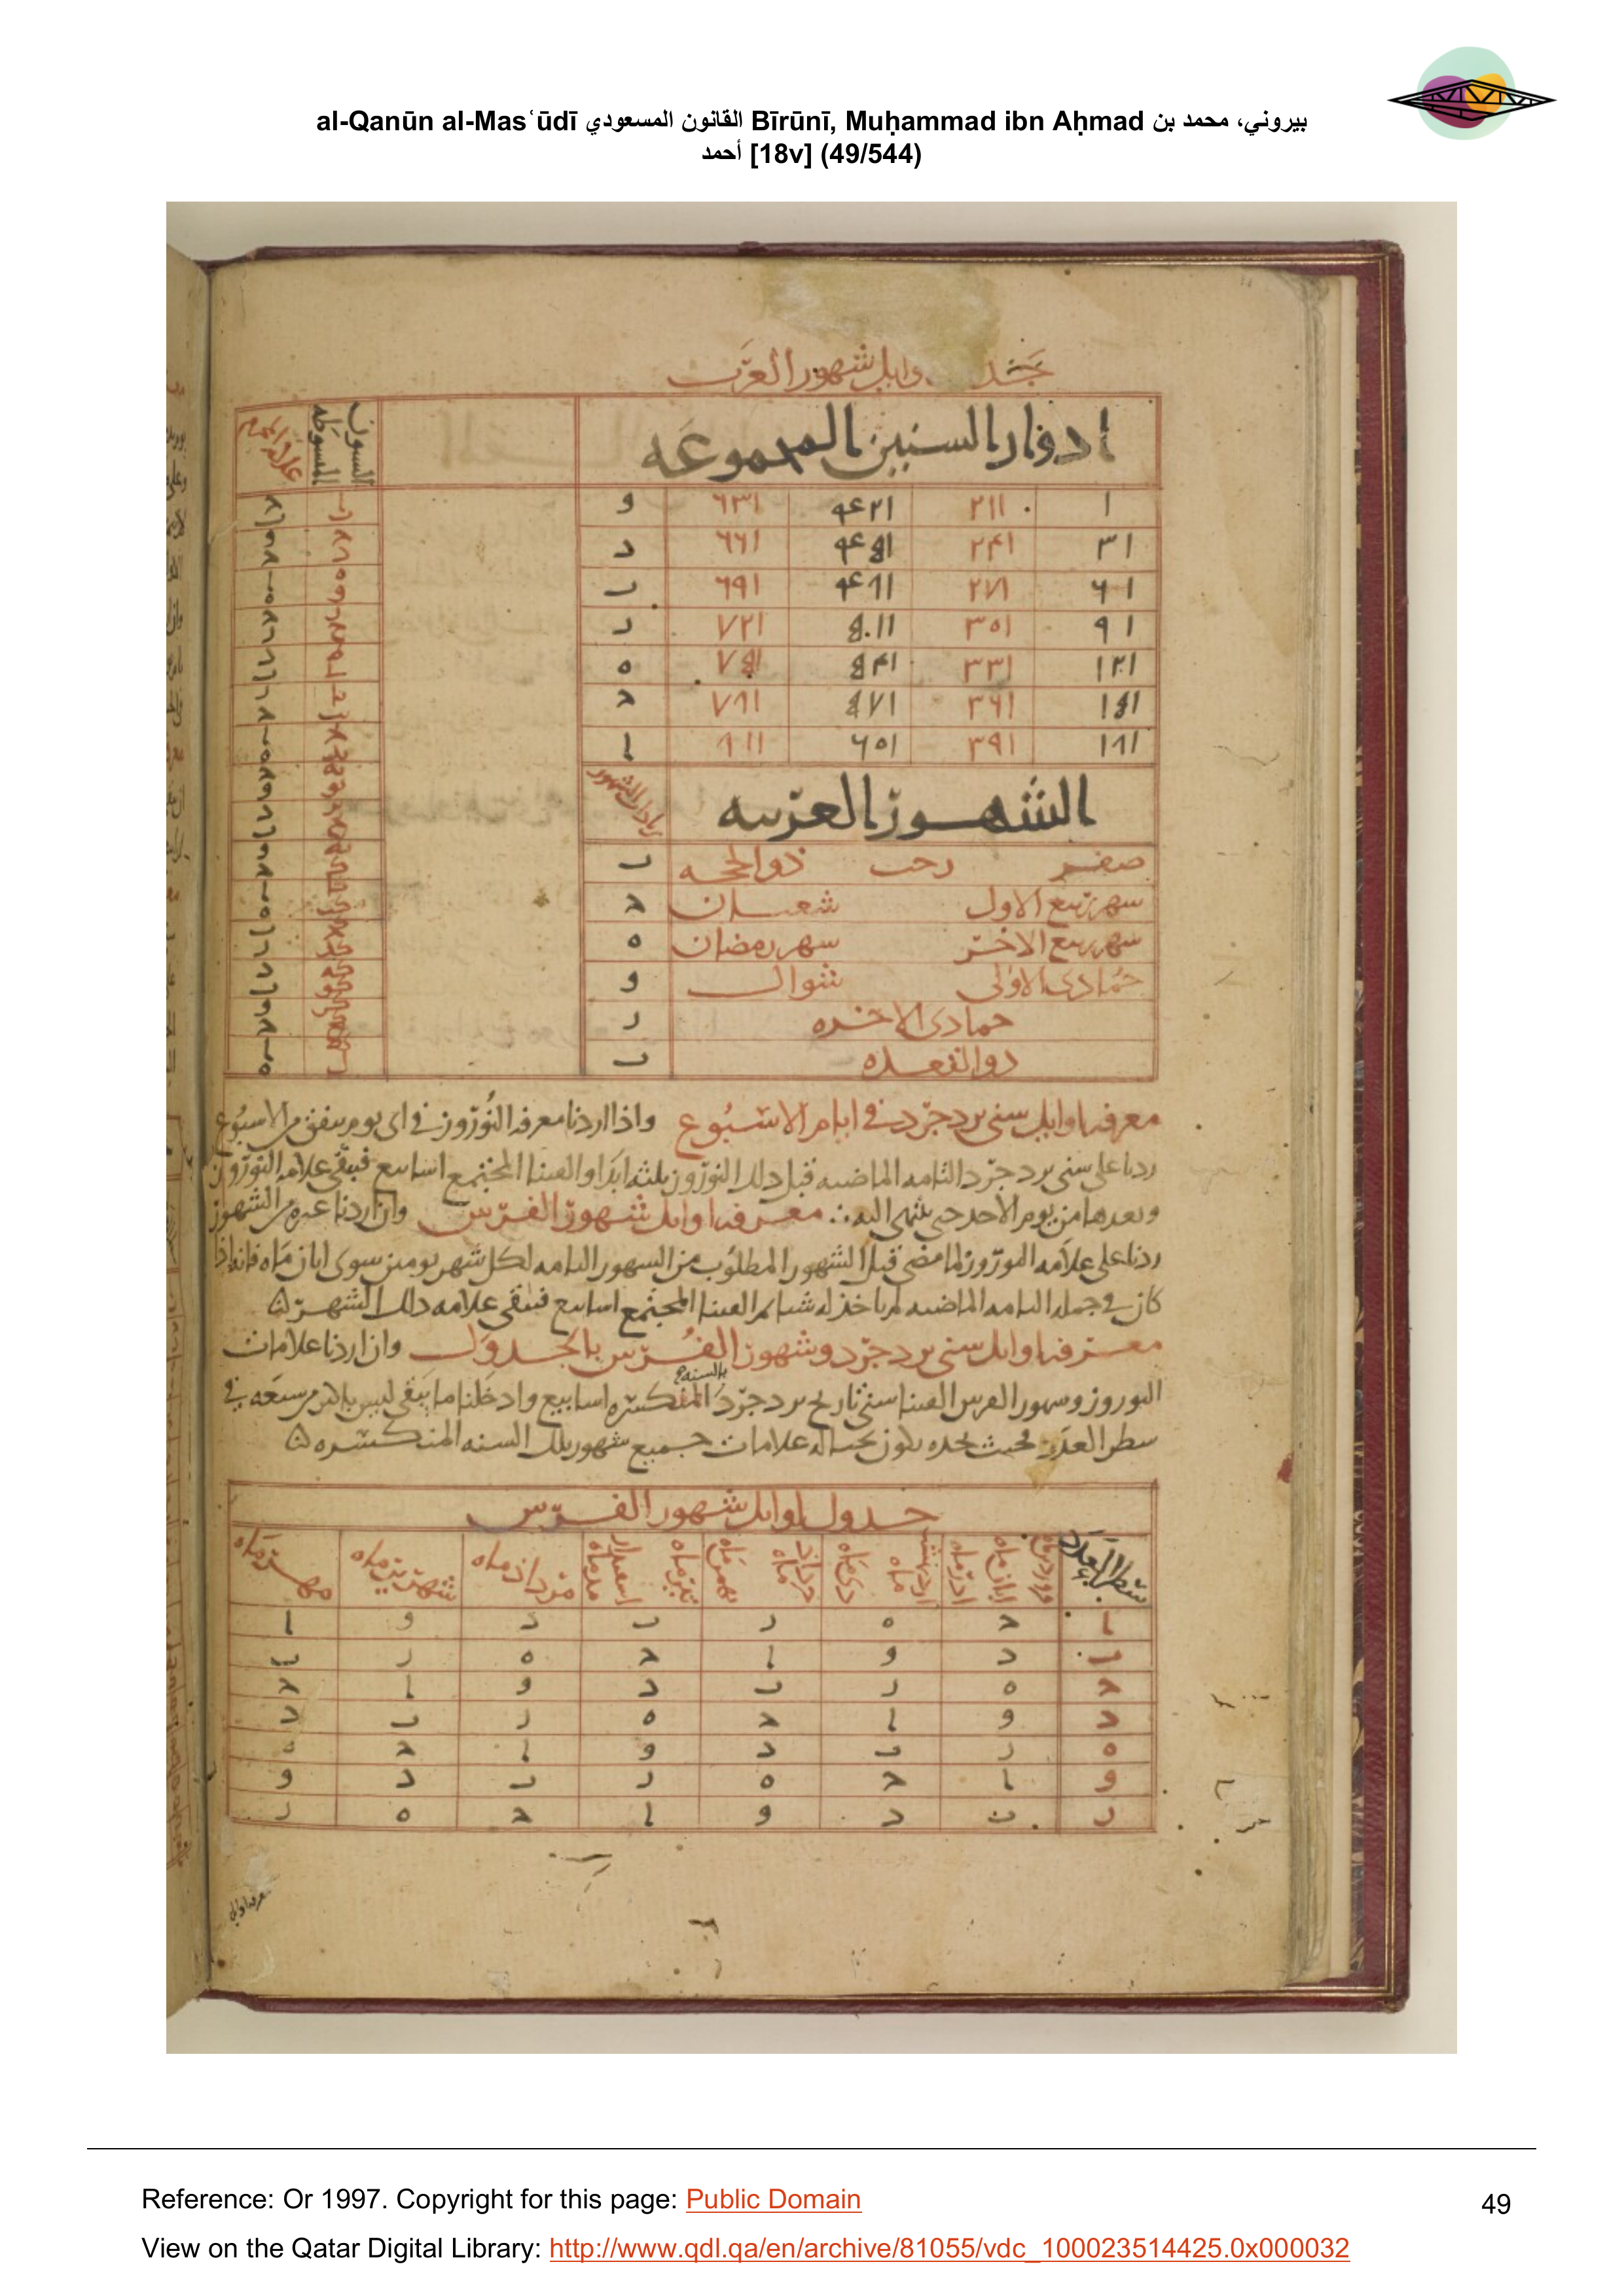 al-Qanūn al-Masʿūdī القانون المسعودي Bīrūnī, Muḥammad ibn Aḥmad بيروني، محمد بن
أحمد [18v] (49/544)
شهور العرب
ادوار السنين المجموعه
السنون المبسوطه
علامه المحرم
١ ٢١١ ٤٢١ ٦٣١ و
٣١ ٢٤١ ٤٥١ ٦٦١ د
٦١ ٢٧١ ٤٨١ ٦٩١ ب
٩١ ٣٠١ ٥١١ ٧٢١ ر
١٢١ ٣٣١ ٥٤١ ٧٥١ ه
١٥١ ٣٦١ ٥٧١ ٧٨١ ح
١٨١ ٣٩١ ٦٠١ ٨١١ ا
الشهور العربيه
زيادات الشهور
صفر رجب ذو الحجه ب
شهر ربيع الاول شعبان ح
شهر ربيع الاخر شهر رمضان ه
جمادى الاولى شوال و
جمادى الاخره ر
ذو القعده ب
معرفه اوايل سنى يزدجرد في ايام الاسبوع واذا اردنا معرفه النوروز في اى يوم يتفق من الاسبوع
زدنا على سنى يزدجرد التامه الماضيه قبل ذلك النوروز ثلثه ابدا والقينا المجتمع اسابيع فيبقى علامه النوروز
ونعدها من يوم الاحد حتى ينتهى اليه ∴ معرفه اوايل شهور الفرس وان اردنا غيره من الشهور
زدنا على علامه النوروز لما مضى قبل الشهور المطلوب من الشهور التامه لكل شهر يومين سوى ابان ماه فانه اذا
كان في جمله التامه الماضيه لم ياخذ له شيا ثم القينا المجتمع اسابيع فيبقى علامه ذلك الشهر
معرفه اوايل سنى يزدجرد وشهور الفرس بالجدول وان اردنا علامات
النوروز وشهور الفرس القينا سنى تاريخ يزدجرد بالسنه المنكسره اسابيع وادخلنا ما يبقى ليس باكثر من سبعه في
سطر العدد فحيث نجده يكون بحياله علامات جميع شهور تلك السنه المنكسره
جدول اوايل شهور الفرس
سطر العدد
فروردين ماه ابان ماه اذر ماه
ارديبهشت ماه دى ماه
خرداد ماه بهمن ماه
تير ماه اسفندارمذ ماه
مرداد ماه
شهرير ماه
مهر ماه
ا ح ه ر ب د و ا
ب د و ا ح ه ر ب
ح ه ر ب د و ا ح
د و ا ح ه ر ب د
ه ر ب د و ا ح ه
و ا ح ه ر ب د و
ر ب د و ا ح ه ر
معرفه اوايل
Reference: Or 1997. Copyright for this page: Public Domain
49
View on the Qatar Digital Library: http://www.qdl.qa/en/archive/81055/vdc_100023514425.0x000032